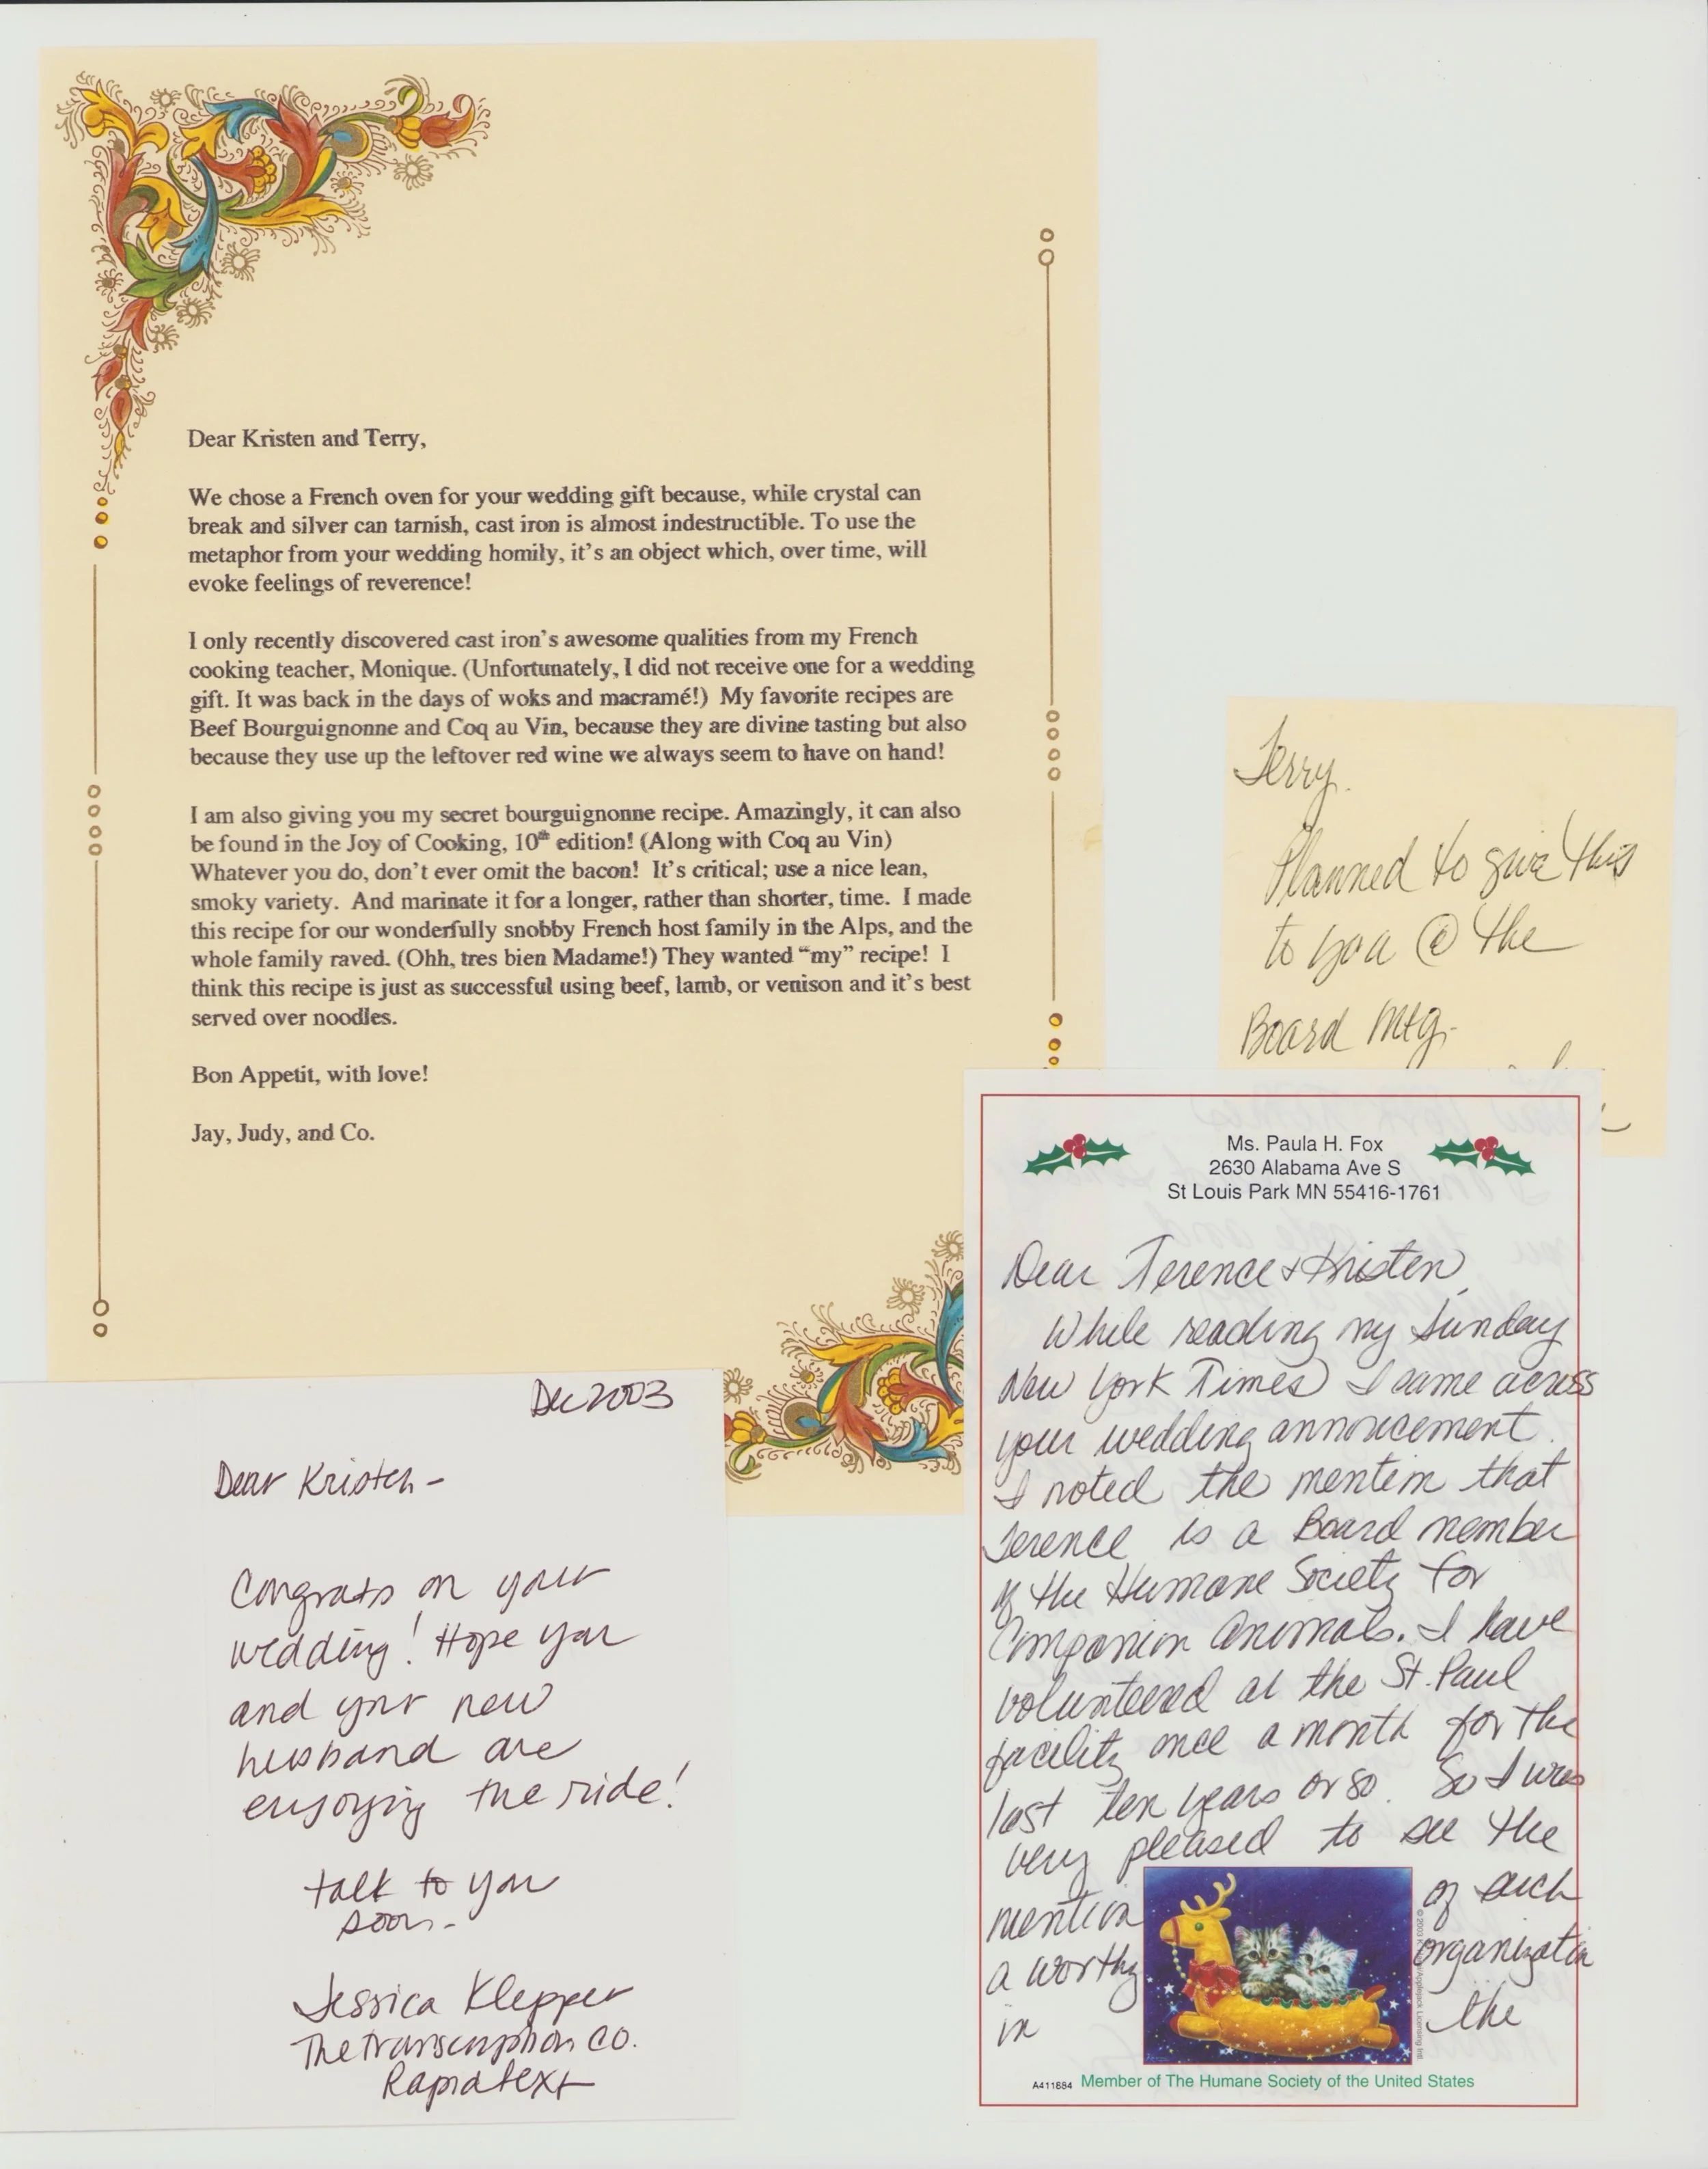 Dear Kristen and Terry,
We chose a French oven for your wedding gift because, while crystal can
break and silver can tarnish, cast iron is almost indestructible. To use the
metaphor from your wedding homily, it's an object which, over time, will
evoke feelings of reverence!
I only recently discovered cast iron's awesome qualities from my French
cooking teacher, Monique. (Unfortunately, I did not receive one for a wedding
gift. It was back in the days of woks and macramé!) My favorite recipes are
Beef Bourguignonne and Coq au Vin, because they are divine tasting but also
because they use up the leftover red wine we always seem to have on hand!
I am also giving you my secret bourguignonne recipe. Amazingly, it can also
be found in the Joy of Cooking, 10th edition! (Along with Coq au Vin)
Whatever you do, don't ever omit the bacon! It's critical; use a nice lean,
smoky variety. And marinate it for a longer, rather than shorter, time. I made
this recipe for our wonderfully snobby French host family in the Alps, and the
whole family raved. (Ohh, tres bien Madame!) They wanted "my" recipe! I
think this recipe is just as successful using beef, lamb, or venison and it's best
served over noodles.
Bon Appetit, with love!
Jay, Judy, and Co.
Terry.
Planned to give this
to you @ the
Board Mtg.
Dec 2003
Dear Kristen -
Congrats on your
wedding! Hope you
and your new
husband are
enjoying the ride!
talk to you
soon -
Jessica Klepper
The Transcription Co.
Rapidtext
Ms. Paula H. Fox
2630 Alabama Ave S
St Louis Park MN 55416-1761
Dear Terence & Kristen,
While reading my Sunday
New York Times I came across
your wedding annoucement.
I noted the mention that
Terence is a Board member
of the Humane Society for
Companion Animals. I have
volunteered at the St. Paul
facility once a month for the
last ten years or so. So I was
very pleased to see the
mention of such
a worthy organization
in the
A411884 Member of The Humane Society of the United States